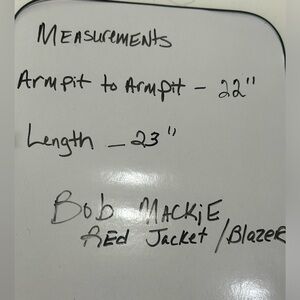 MEASUREMENTS
Armpit to Armpit - 22"
Length - 23"
BOB MACKIE
RED Jacket / BlazeR